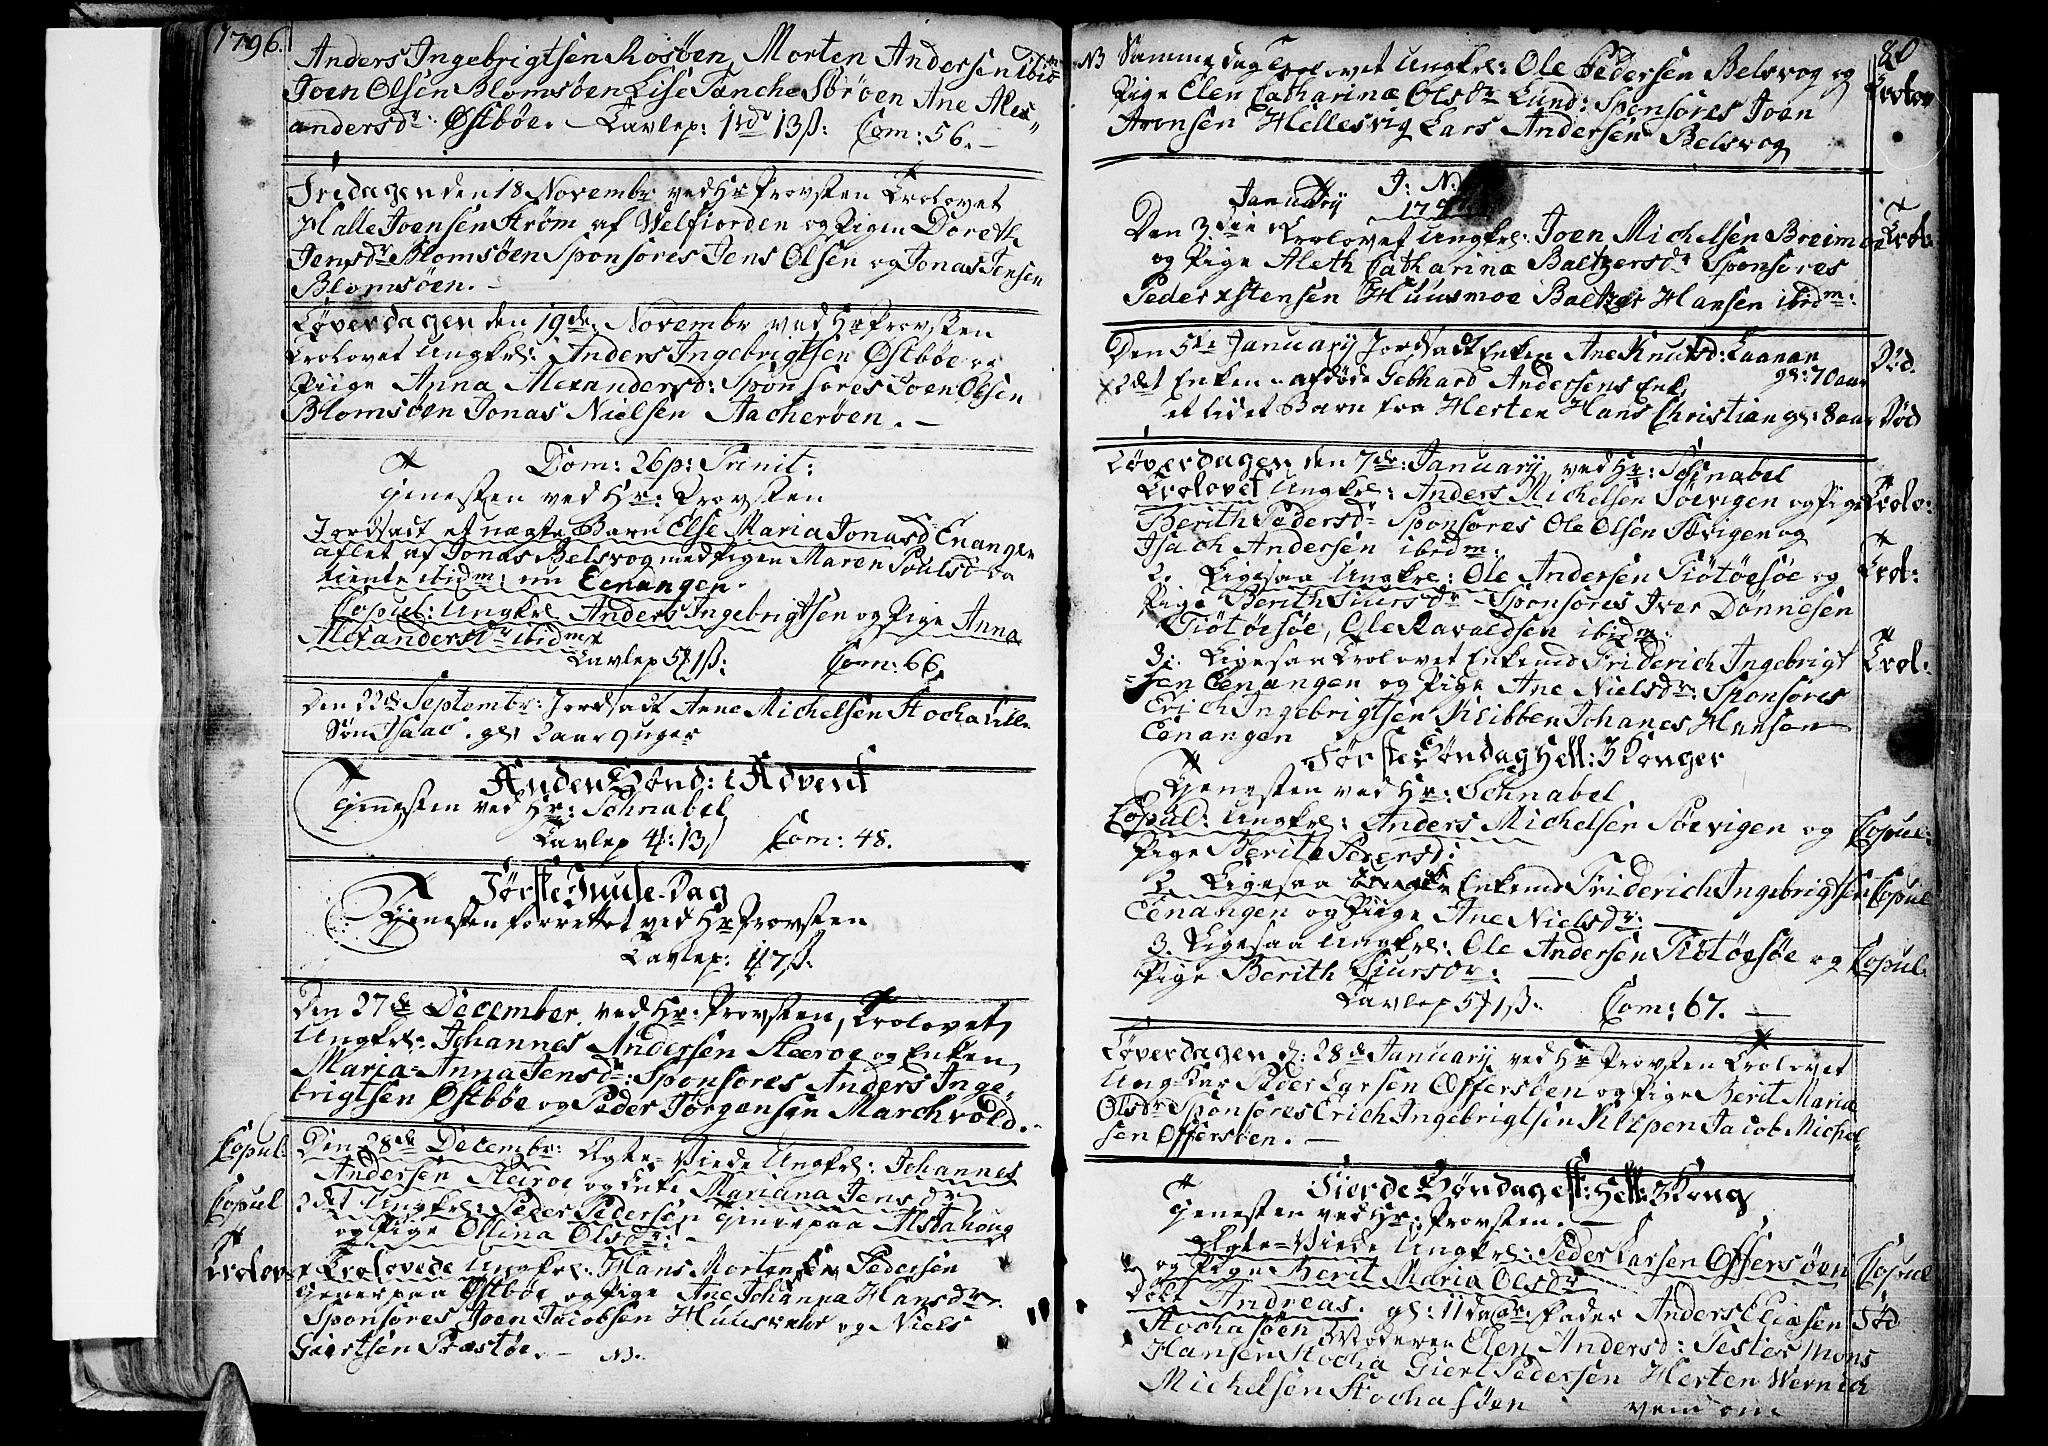 1796.
Anders Ingebrigtsen Rosøen, Morten Andersen ibid:
Joen Olsen Blomsøen Lise Tanche Sørøen Ane Alex=
andersdr Østbøe. – Tavlep: 1rdr 13ß: Com: 56. –
Fredagen den 18 Novembr ved Hr Provsten Trolovet
Halle Joensen Strøm af Welfiorden og Pigen Doreth
Jensdr Blomsøen Sponsores Jens Olsen og Jonas Jensen
Blomsøen. –
Løverdagen den 19de Novembr ved Hr Provsten
Trolovet Ungkrl: Anders Ingebrigtsen Østbøe og
Piige Anna Alexandersd: Sponsores Joen Olsen
Blomsøen Jonas Nielsen Aacherøen. –
Dom: 26 p: Trinit:
Tjenesten ved Hr: Provsten
Jordfæst et uægte Barn Else Maria Jonasd Enangen
aflet af Jonas Belsvog med Pigen Maren Poulsd da
tiente ibidm: nu Eenangen.
Copul: Ungkrl Anders Ingebrigtsen og Pige Anna
Alexandersdr ibidm
Tavlep 5 1ß: Com: 66.
Den 22de Septembr: Jordfæst Arne Michelsen Stocha lille
Søn Isaac. gl: 2 aar 9 uger
Anden Sønd: i Advent
Tjenesten ved Hr: Schnabel
Tavlep 4: 13 Com: 48.
Første Juule-Dag
Tjenesten forrettet ved Hr Provsten
Tavlep: 17ß.
Den 27de December, ved Hr: Provsten, Trolovet
Ungkrl: Johannes Andersen Hæroe og Enken
Maria-Anna Jensdr: Sponsores Anders Inge=
brigtsen Østbøe og Peder Jørgensen Marchvold. –
Copul: Den 28de Decembr: Ægte-Viede Ungkrl: Johannes
Andersen Heiroe og Enke Mariana Jensdr
Copul 2det Ungkrl: Peder Pedersen tjenere paa Alstahoug
og Pige Ollina Olsdr: –
Trolov. Trolovede Ungkrl: Hans Mortensen Pedersen
tjener paa Østbøe og Pige Ane Johanna Hansdr.
Sponsores Joen Jacobsen Huusvær og Niels
Giertsen Træstøe. – NB.
80
NB Samme dag Trolovet Ungkrl: Ole Pedersen Belsvog og Trolov
Pige Elen Catharina Olsdr Lund: Sponsores Joen
Aronsen Hellesvig Lars Andersen Belsvog
J: N:
January 179
Den 3die Trolovet Ungkrl: Joen Michelsen Breimoe Trolo:
og Pige Aleth Catharina Baltzersdr Sponsores
Peder Xstensen Huusmoe Baltzer Hansen ibidm:
Den 5te January Jordfæst Enken Ane Knutsd: Laanan Død.
gl: 70 aar
2det Enken afdøde Gebhard Andersens Enk.
et lidet Barn fra Herten Hans Christian gl: 8 aar Død
Løverdagen den 7de: January, ved Hr: Schnabel
Trolovet Ungkrl: Anders Michelsen Søevigen og Pige Trolo:
Berith Pedersdr Sponsores Ole Olsen Søevigen og
Isach Andersen ibidm:
2. Ligesaa Ungkrl: Ole Andersen Tiøtøesøe og Trol:
Pige Berith Siursdr Sponsores Iver Dønnesen
Tiøtøesøe, Ole Ravaldsen ibidm.
3: Ligesaa Trolovet Enkemd Friderich Ingebrigt Trol:
=sen Eenangen og Pige Ane Nielsdr: Sponsores
Erich Ingebrigtsen Klibben Johanes Hansen
Eenangen
Første Søndag Hell: 3 Konger
Tjenesten ved Hr: Schnabel
Copul: Ungkrl: Anders Michelsen Søevigen og Copul:
Pige Berith Pedersd:
2. Ligesaa Enkemd Friderich Ingebrigtsen Copul
Eenangen og Piige Ane Nielsdr:
3. Ligesaa Ungkrl: Ole Andersen Tiøtøesøe og Copul:
Pige Berith Sjursdr:
Tavlep 5 1ß: Com: 67. –
Løverdagen d: 28de January ved Hr Provsten Trolovet
Ung-Kar Peder Larsen Offersøen og Pige Berit Maria
Olsdr Sponsores Erich Ingebrigtsen Klipen Jacob Michel=
sen Offersøen. –
Fierde Søndag eft: Hell: 3 Kong
Tjenesten ved Hr: Provsten. –
Ægte-Viede Ungkrl: Peder Larsen Offersøen Copul
og Pige Berit Maria Olsdr
Døbt Andreas. gl: 11 dage: Fader Anders Eliasen Fød
Stochasøen Moderen Elen Andersd: Testes Mons
Hansen Stocha Giert Pedersen Herten Wernich
Michelsen Stochasøen
vend om